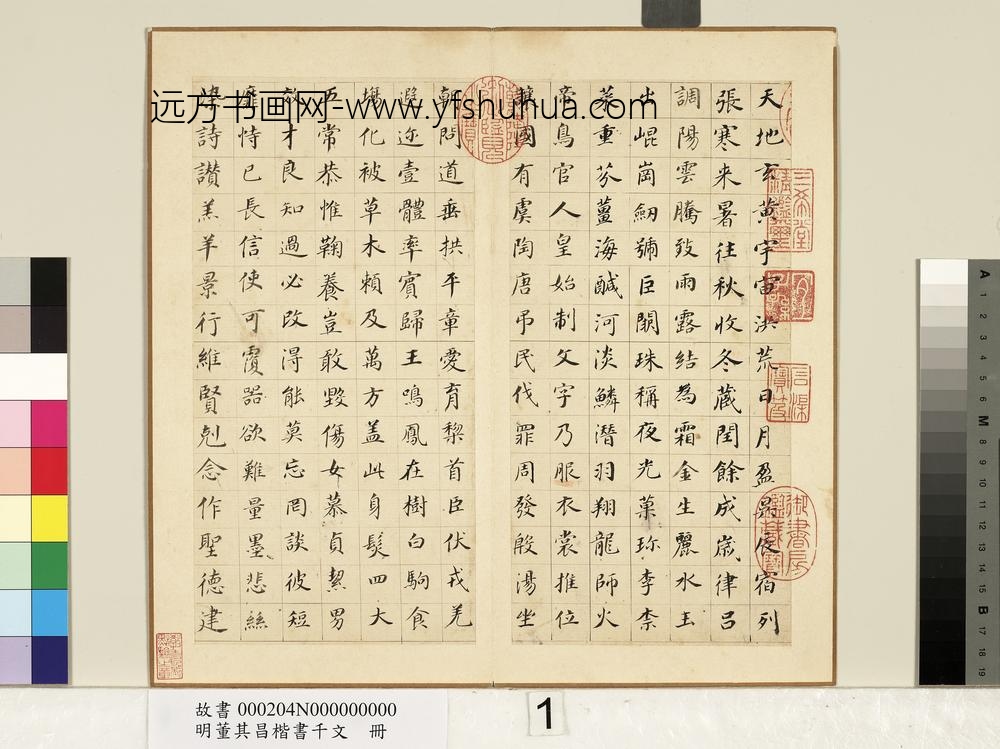 天地玄黄宇宙洪荒日月盈昃辰宿列
張寒来暑往秋收冬蔵閏餘成嵗律吕
調陽雲騰致雨露結為霜金生麗水玉
出崐崗劒號巨闕珠稱夜光菓珎李柰
菜重芥薑海鹹河淡鱗潛羽翔龍師火
帝鳥官人皇始制文字乃服衣裳推位
讓國有虞陶唐吊民伐罪周發殷湯坐
朝問道垂拱平章愛育黎首臣伏戎羌
遐迩壹體率賓歸王鳴鳳在樹白駒食
塲化被草木賴及萬方盖此身髮四大
五常恭惟鞠養豈敢毀傷女慕貞絜男
效才良知過必改得能莫忘罔談彼短
靡恃已長信使可覆器欲難量墨悲絲
染詩讃羔羊景行維賢剋念作聖德建
三希堂精鑑璽
宜子孫
石渠寶笈
远方书画网-www.yfshuhua.com
故書 000204N000000000
明董其昌楷書千文 冊
1
A 1 2 3 4 5 6 M 8 9 10 11 12 13 14 15 B 17 18 19